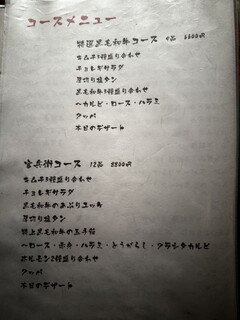 コースメニュー
特選黒毛和牛コース 9品 6600円
キムチ3種盛り合わせ
チョレギサラダ
厚切り塩タン
黒毛和牛3種盛り合わせ
～カルビ・ロース・ハラミ
クッパ
本日のデザート
官兵衛コース 12品 8800円
キムチ3種盛り合わせ
チョレギサラダ
黒毛和牛のあぶりユッケ
厚切り塩タン
特上黒毛和牛の玉手箱
～ロース・赤身・ハラミ・とうがらし・クラシタカルビ
ホルモン2種盛り合わせ
クッパ
本日のデザート